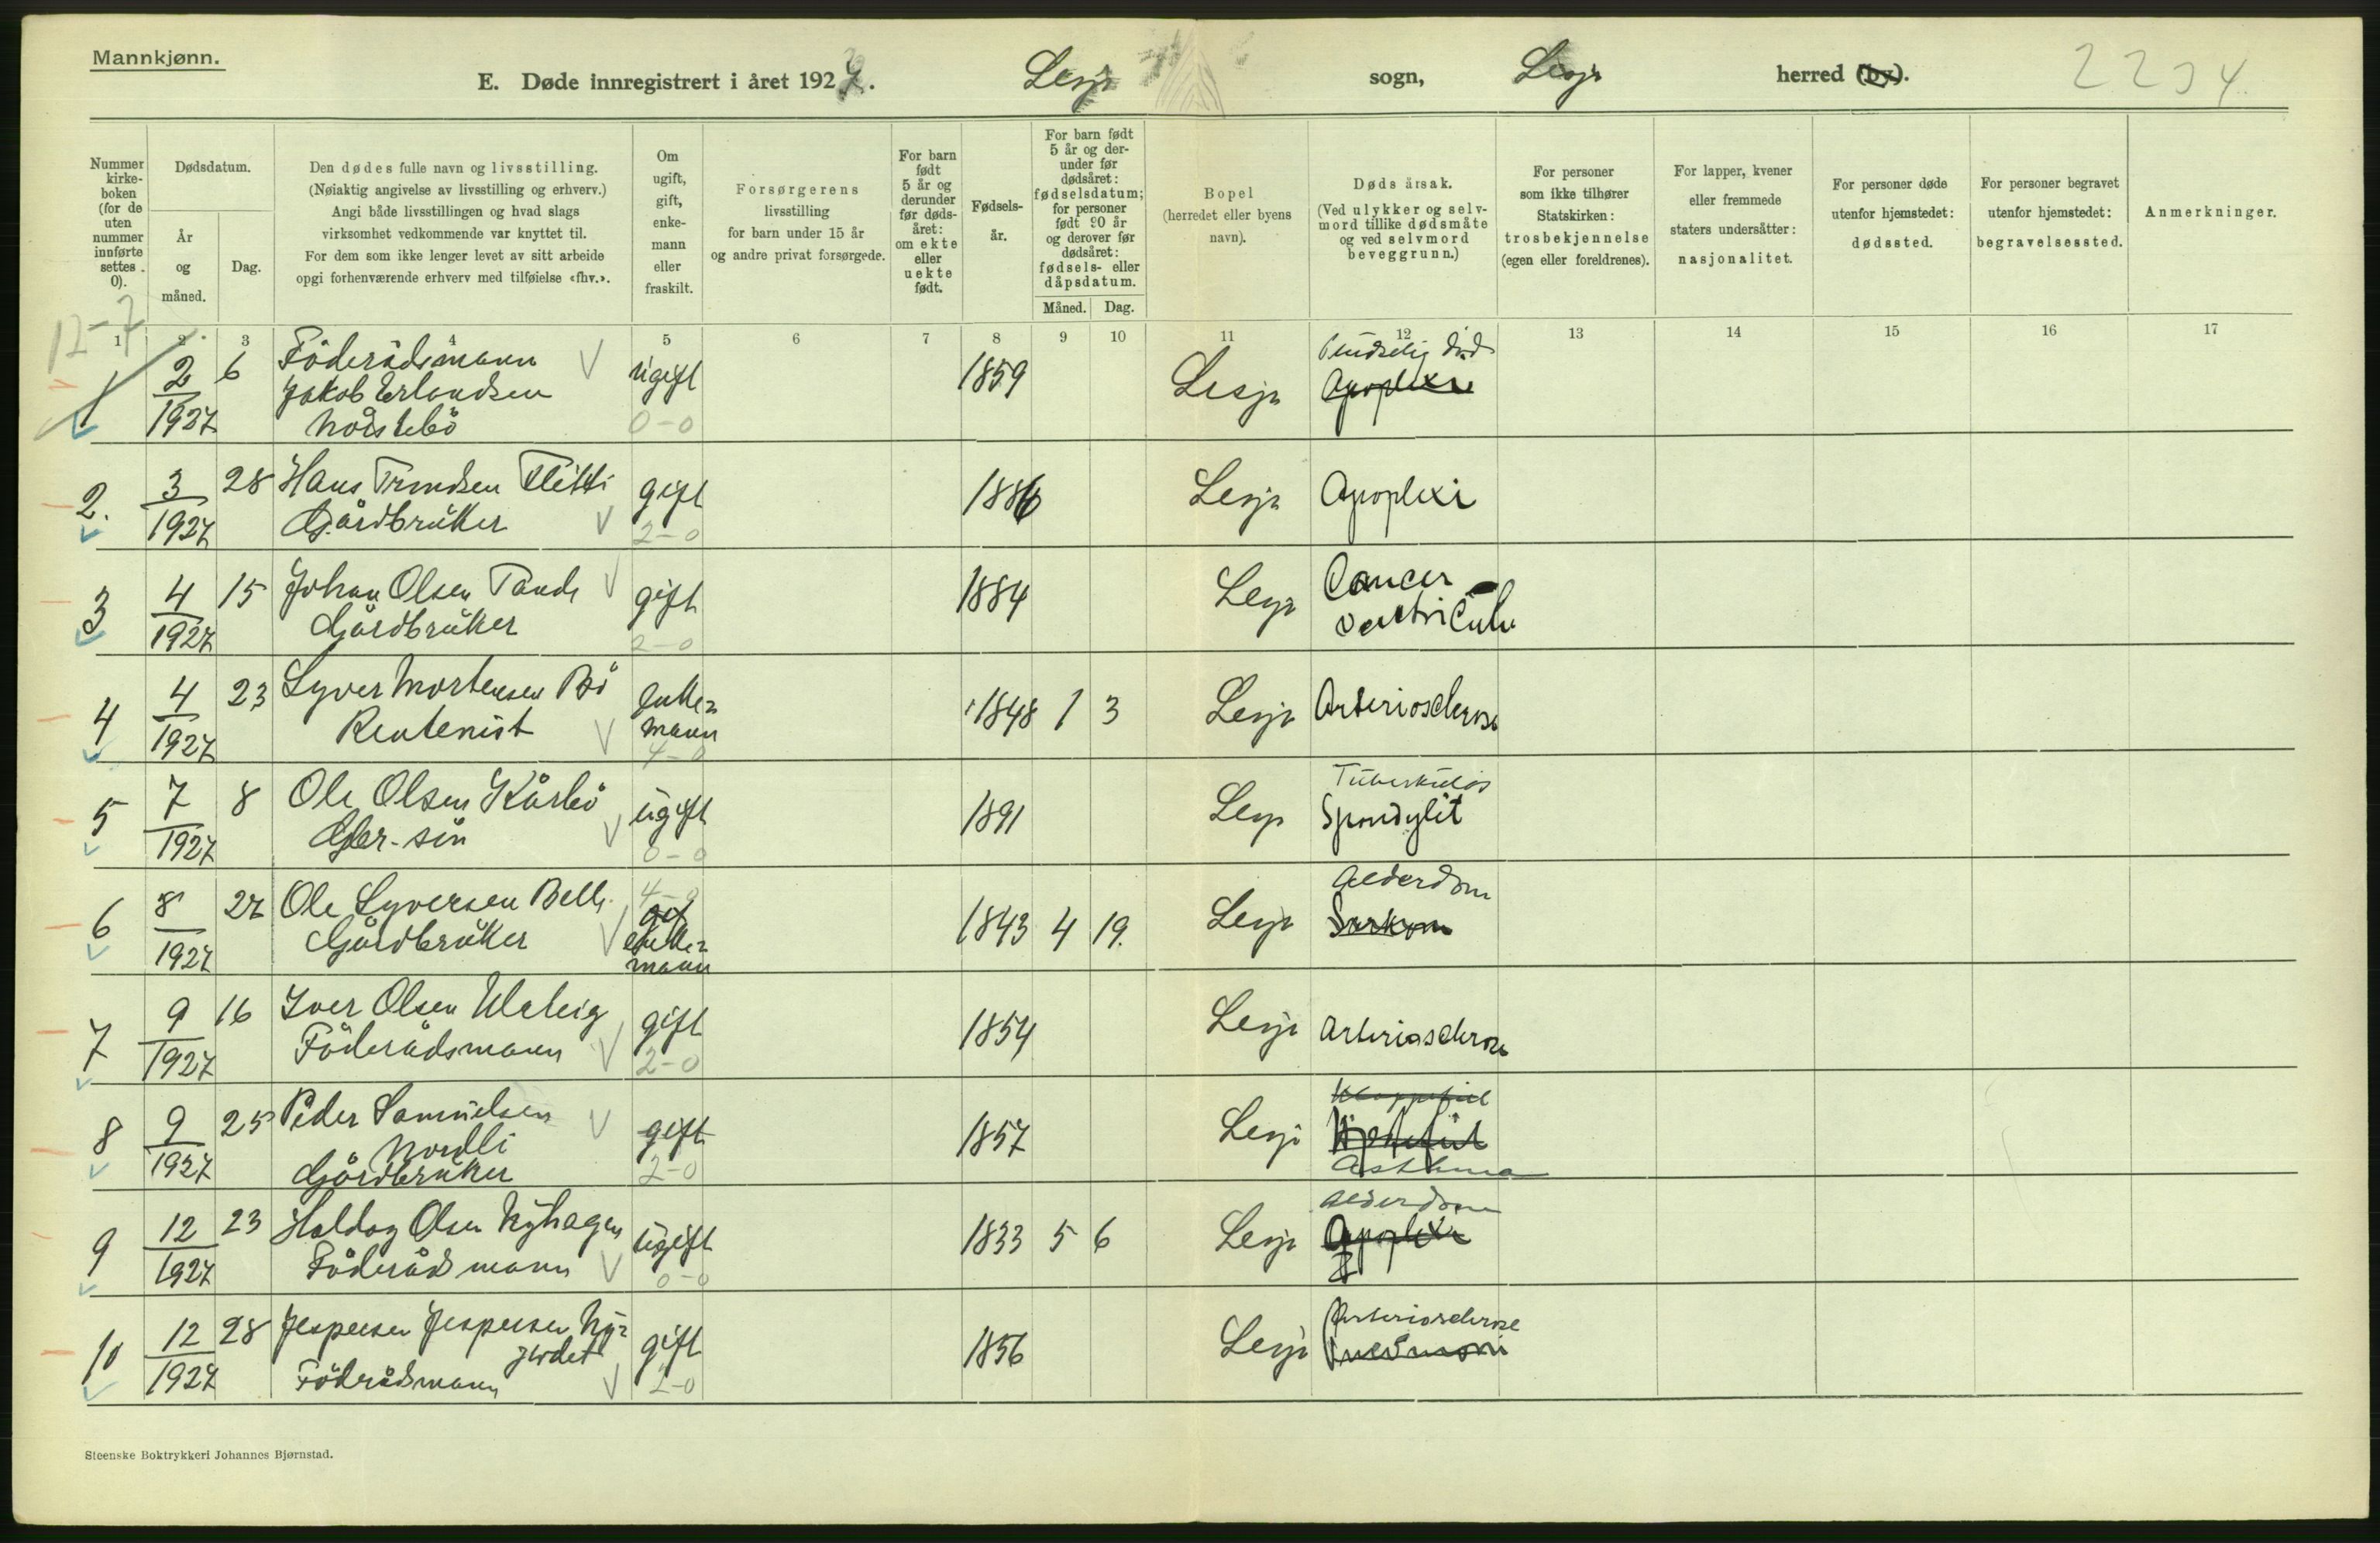 Mannkjønn.
E. Døde innregistrert i året 1927. Lesja sogn, Lesja herred (by). 2234
Nummer kirke-boken (for de uten nummer innførte settes 0).
Dødsdatum.
År og måned.
Dag.
Den dødes fulle navn og livsstilling.
(Nøiaktig angivelse av livsstilling og erhverv.)
Angi både livsstillingen og hvad slags
virksomhet vedkommende var knyttet til.
For dem som ikke lenger levet av sitt arbeide
opgi forhenværende erhverv med tilføielse «fhv.».
Om ugift, gift, enke-mann eller fraskilt.
Forsørgerens
livsstilling
for barn under 15 år
og andre privat forsørgede.
For barn født 5 år og derunder før døds-året: om ekte eller uekte født.
Fødsels-år.
For barn født 5 år og der-under før dødsåret: fødselsdatum; for personer født 90 år og derover før dødsåret: fødsels- eller dåpsdatum.
Måned. Dag.
Bopel
(herredet eller byens
navn).
Døds årsak.
(Ved ulykker og selv-
mord tillike dødsmåte
og ved selvmord
beveggrunn.)
For personer
som ikke tilhører
Statskirken:
trosbekjennelse
(egen eller foreldrenes).
For lapper, kvener
eller fremmede
staters undersåtter:
nasjonalitet.
For personer døde
utenfor hjemstedet:
dødssted.
For personer begravet
utenfor hjemstedet:
begravelsessted.
Anmerkninger.
12-7
1 2 3 4 5 6 7 8 9 10 11 12 13 14 15 16 17
1 2/1927 6 Föderådsmann Jakob Erlandsen Norstebö ugift 0-0 1859 Lesja Pludselig död Apoplexi
2. 3/1927 28 Hans Trondsen Flitti Gårdbruker gift 2-0 1886 Lesja Apoplexi
3 4/1927 15 Johan Olsen Tande Gårdbruker gift 2-0 1884 Lesja Cancer ventriculi
4 4/1927 23 Syver Mortensen Bö Rentenist Enke= mann 4-0 1848 1 3 Lesja Arteriosclerose
5 7/1927 8 Ole Olsen Kårbö Gbr-sön ugift 0-0 1891 Lesja Tuberkulös Spondylit
6 8/1927 27 Ole Syversen Belle Gårdbruker 4-0 gift enke= mann 1843 4 19. Lesja Alderdom Sarkom
7 9/1927 16 Iver Olsen Ulateig Föderådsmann gift 2-0 1854 Lesja Arteriosclerose
8 9/1927 25 Peder Samuelsen Nordli Gårdbruker gift 2-0 1857 Lesja Klappefeil Hjertefeil Asthma
9 12/1927 23 Haldog Olsen Nyhagen Föderådsmann ugift 0-0 1833 5 6 Lesja Alderdom Apoplexi
10 12/1927 28 Jespersen Jespersen Ny= jordet Föderådsmann gift 2-0 1856 Lesja Arteriosclerose Pneumoni
Steenske Boktrykkeri Johannes Bjørnstad.